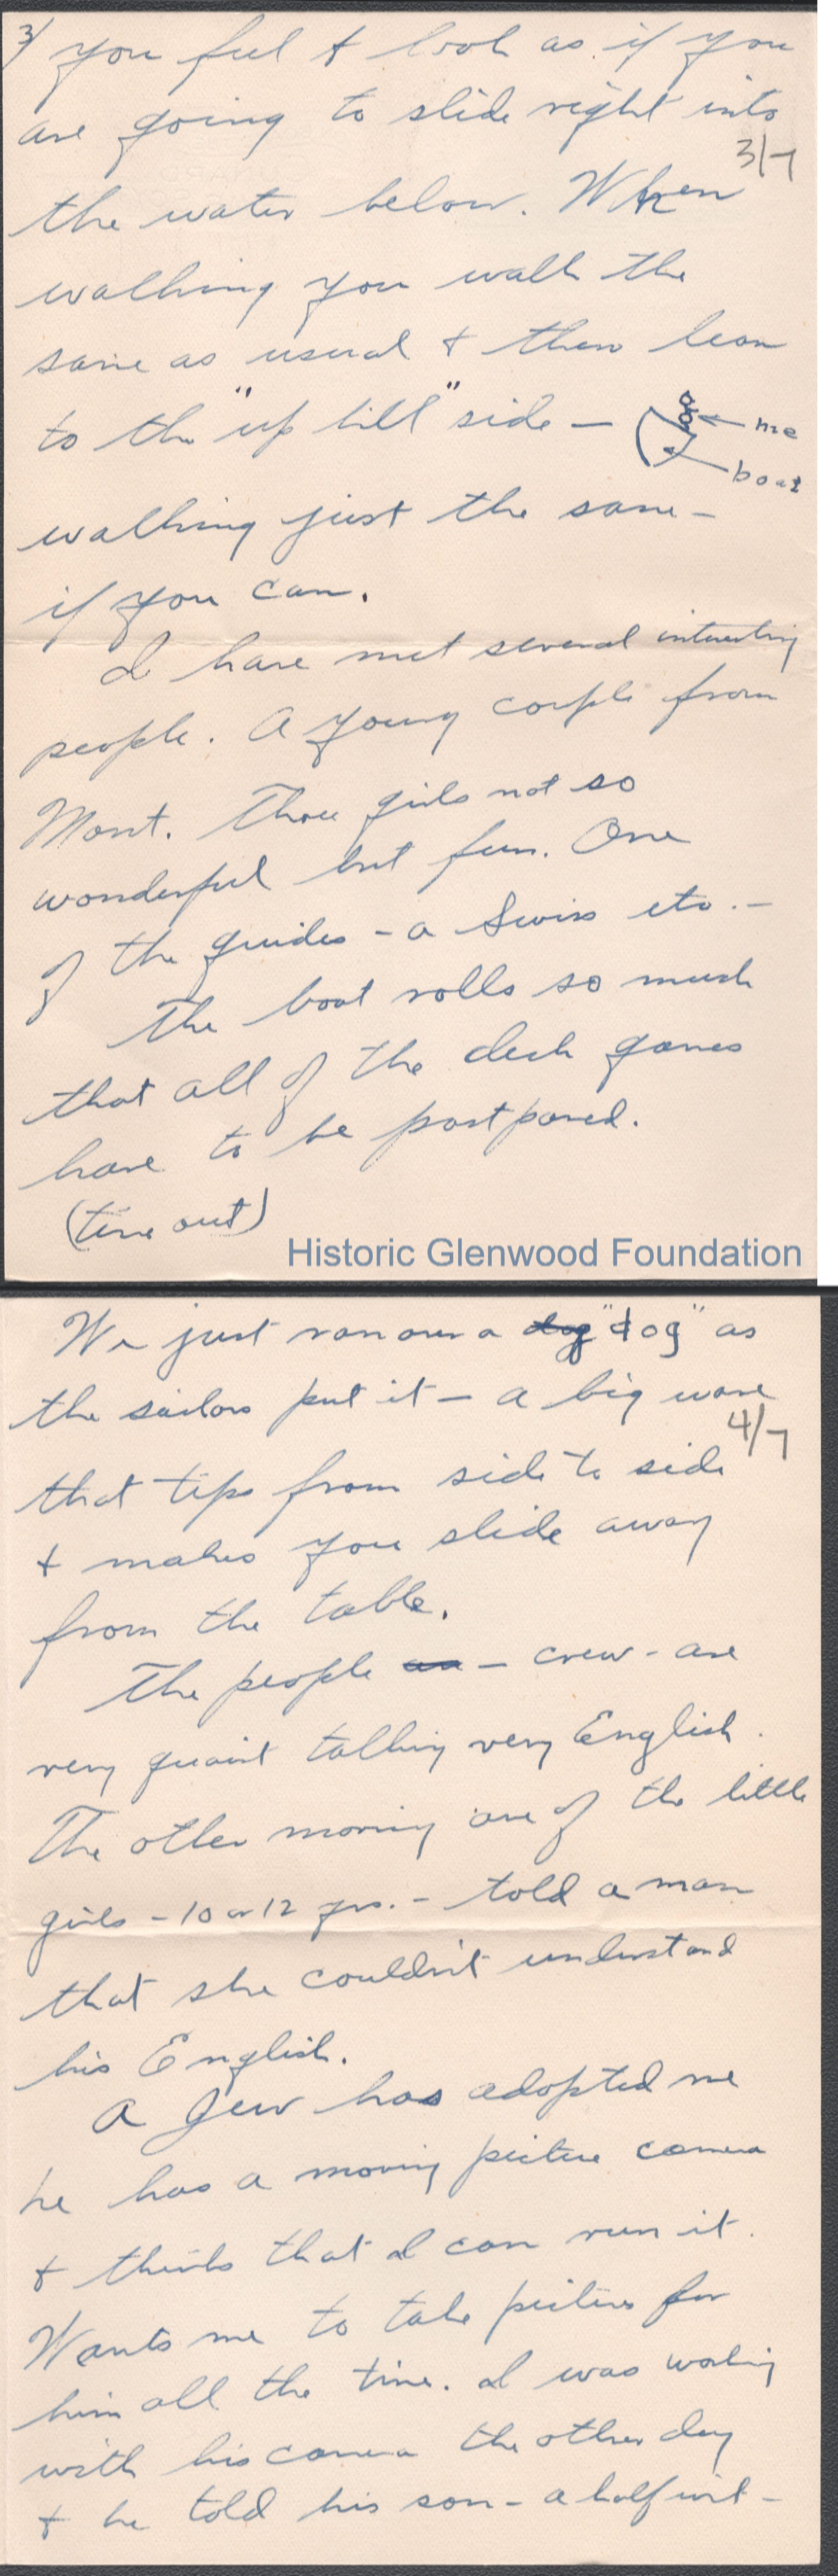 3/ you feel + look as if you
are going to slide right into
3/7
the water below. When
walking you walk the
same as usual + then lean
to the "up hill" side —
me
boat
walking just the same –
if you can.
I have met several interesting
people. A young couple from
Mont. Three girls not so
wonderful but fun. One
of the guides – a Swiss etc. –
The boat rolls so much
that all of the deck games
have to be postponed.
(time out)
Historic Glenwood Foundation
We just ran over a dog "dog" as
the sailors put it – a big wave
4/7
that tips from side to side
+ makes you slide away
from the table.
The people – crew – are
very quaint talking very English.
The other morning one of the little
girls – 10 or 12 yrs. – told a man
that she couldn't understand
his English.
A Jew has adopted me
he has a moving picture camera
+ thinks that I can run it.
Wants me to take pictures for
him all the time. I was working
with his camera the other day
+ he told his son – a half wit –